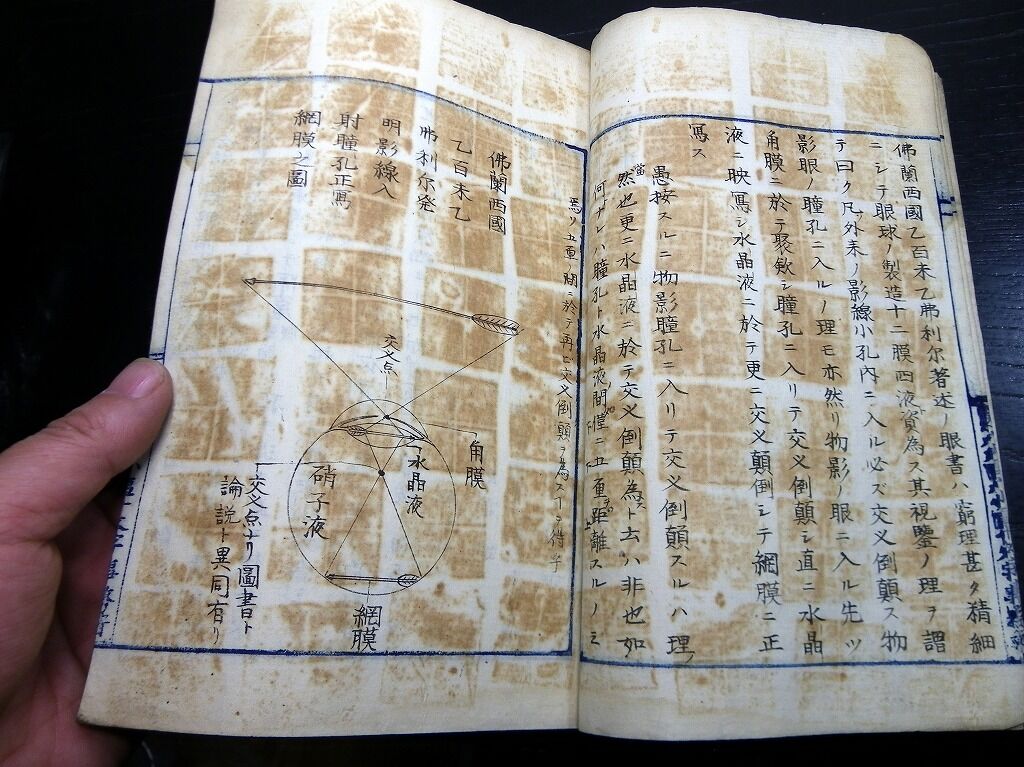 佛蘭西國乙百未乙弗利尔著述ノ眼書ハ窮理甚タ精細
ニシテ眼球ノ製造十二膜四液資為ス其視鑒ノ理ヲ謂
テ曰ク凡ソ外来ノ影線小孔内ニ入ル必ズ交叉倒顛ス物
影眼ノ瞳孔ニ入ルノ理モ亦然リ物影ノ眼ニ入ル先ツ
角膜ニ於テ聚歛シ瞳孔ニ入リテ交叉倒顛シ直ニ水晶
液ニ映寫シ水晶液ニ於テ更ニ交叉顛倒シテ網膜ニ正
寫ス
愚按スルニ物影瞳孔ニ入リテ交叉倒顛スルハ理ノ
當然也更ニ水晶液ニ於テ交叉倒顛為スト去ハ非也如
何ナレハ瞳孔ト水晶液間僅ニ五重距離スルノミ
五重間ニ於テ再ビ交叉倒顛ヲ為スヿヲ得乎
佛蘭西國
乙百未乙
弗利尔発
明影線入
射瞳孔正寫
網膜之圖
交叉点
角膜
水晶液
硝子液
交叉点ナリ圖書ト
論説ト異同有リ
網膜